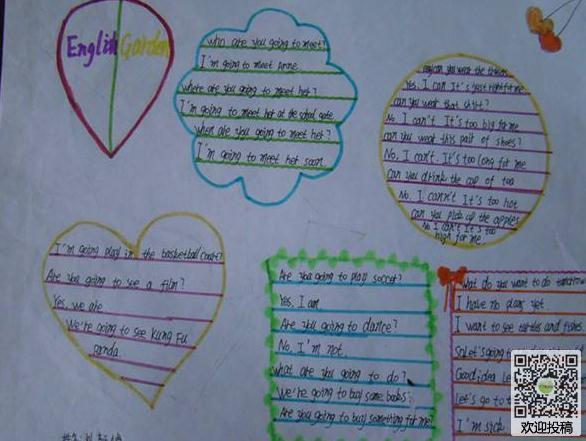 English Garden
who are you going to meet?
I'm going to meet Anne
where are you going to meet her?
I'm going to meet her at the school gate
when are you going to meet her?
I'm going to meet her soon
can you wear the
Yes. I can It's just right for me
can you wear that shirt?
No. I can't. It's too big for me
can you wear this pair of shoes?
No. I can't. It's too long for me
can you drink the cup of tea
No. I cann't It's too hot
can you pick up the apples
No I can't It's too
high for me
I'm going play in the basketball court?
Are you going to see a film?
Yes, we are
We're going to see Kung Fu
ganda.
Are you going to play soccer?
Yes, I am
Are you going to dance?
No, I'm not.
what are you going to do?
We're going to buy some books.
Are you going to buy something for me?
What do you want to do tomorrow
I have no plans yet.
I want to see turtles and fishes.
So Let's going to
Good idea Le
Let's go to t
I'm sick
欢迎投稿